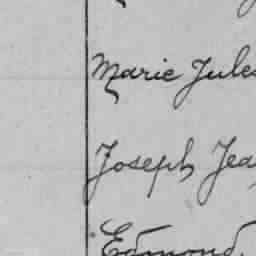 Marie Jules
Joseph Jea
Edmond